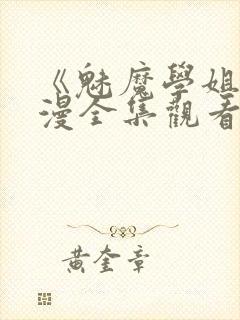 《魅魔學姐
漫全集觀看
黃奎章